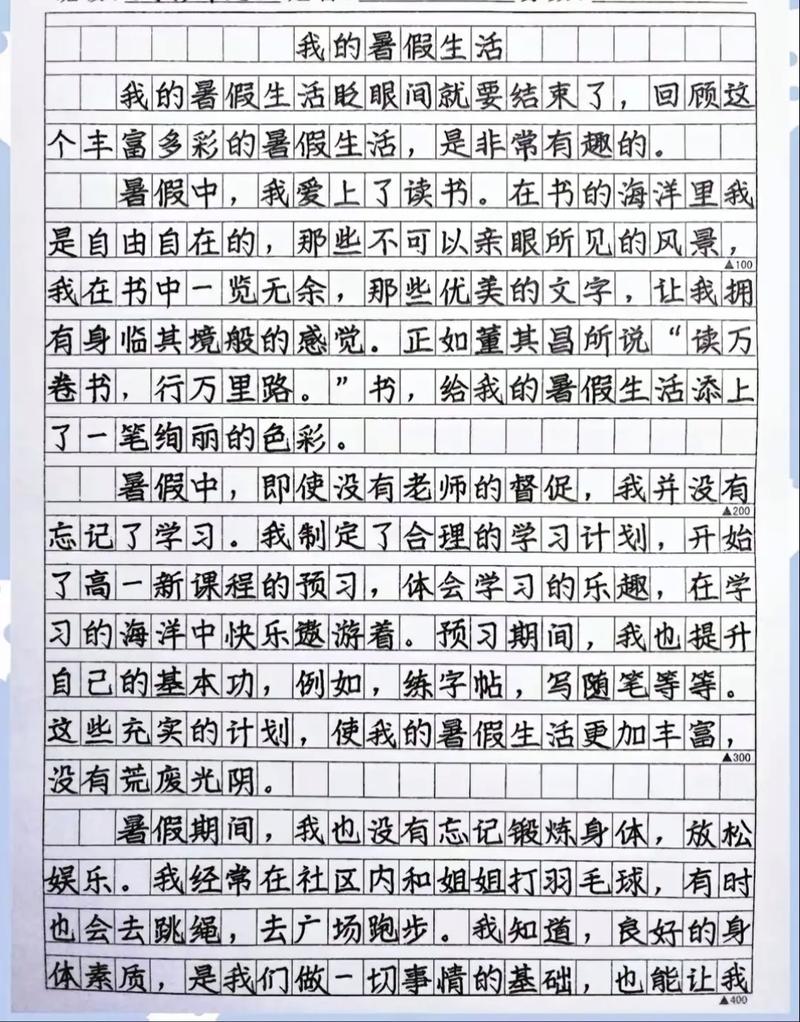 我的暑假生活
我的暑假生活眨眼间就要结束了，回顾这
个丰富多彩的暑假生活，是非常有趣的。
暑假中，我爱上了读书。在书的海洋里我
是自由自在的，那些不可以亲眼所见的风景，
▲100
我在书中一览无余，那些优美的文字，让我拥
有身临其境般的感觉。正如董其昌所说“读万
卷书，行万里路。”书，给我的暑假生活添上
了一笔绚丽的色彩。
暑假中，即使没有老师的督促，我并没有
▲200
忘记了学习。我制定了合理的学习计划，开始
了高一新课程的预习，体会学习的乐趣，在学
习的海洋中快乐遨游着。预习期间，我也提升
自己的基本功，例如，练字帖，写随笔等等。
这些充实的计划，使我的暑假生活更加丰富，
▲300
没有荒废光阴。
暑假期间，我也没有忘记锻炼身体，放松
娱乐。我经常在社区内和姐姐打羽毛球，有时
也会去跳绳，去广场跑步。我知道，良好的身
体素质，是我们做一切事情的基础，也能让我
▲400